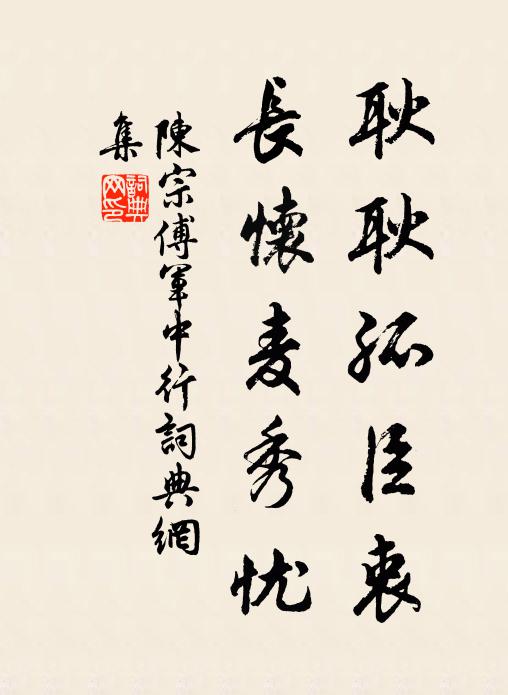 耿耿孤臣衷
長懷麦秀忧
陳宗傅軍中行詞典網
集
詞典
网印